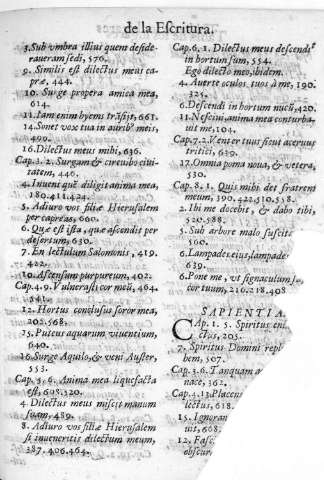 de la Escritura.
3. Sub vmbra illius quem deside-
raueram sedi, 576.
9. Similis est dilectus meus ca-
præ, 444.
10. Surge propera amica mea,
614.
11. Iam enim hyems trāsijt, 661.
14. Sonet vox tua in auribꝰ meis,
499.
16. Dilectus meus mihi, 636.
Cap. 3. 2. Surgam, & circuibo ciui-
tatem, 446.
4. Inueni quē diligit anima mea,
180. 411. 434.
5. Adiuro vos filiæ Hierusalem
per capreas, 660.
6. Quæ est ista, quæ ascendit per
desertum, 630.
7. En lectulum Salomonis, 419.
422.
10. Ascensum purpureum, 402.
Cap. 4. 9. Vulnerasti cor meū, 464.
541.
12. Hortus conclusus soror mea,
202. 568.
15. Puteus aquarum viuentium,
640.
16. Surge Aquilo, & veni Auster,
553.
Cap. 5. 6. Anima mea liquefacta
est, 605. 520.
4. Dilectus meus misit manum
suam, 489.
8. Adiuro vos filiæ Hierusalem
si inueneritis dilectum meum,
387. 406. 464.
Cap. 6. 1. Dilectus meus descendit
in hortum suum, 554.
Ego dilecto meo, ibidem.
4. Auerte oculos tuos à me, 190.
325.
6. Descendi in hortum nucū, 420.
11. Nesciui, anima mea conturba-
uit me, 104.
Cap. 7. 2. Venter tuus sicut aceruus
tritici, 639.
17. Omnia poma noua, & vetera,
530.
Cap. 8. 1. Quis mihi det fratrem
meum, 190. 422. 510. 558.
2. Ibi me docebis, & dabo tibi,
520. 588.
5. Sub arbore malo suscita
560.
6. Lampades eius, lampade
639.
6. Pone me, vt signaculum s
cor tuum, 216. 218. 408
SAPIENTIA.
CAp. 1. 5. Spiritus eni
ctus, 205.
7. Spiritus Domini repl
bem, 507.
Cap. 3. 6. Tanquam a
nace, 362.
Cap. 4. 13. Placen
lectus, 618.
15. Ignoran
uis, 608.
12. Fasc
obscur